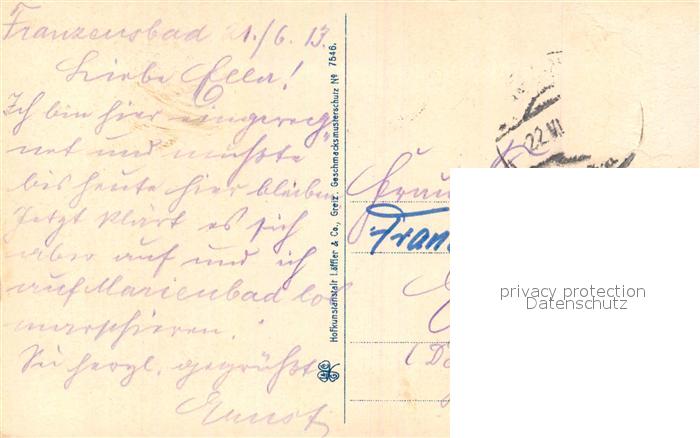 Franzensbad 21./6. 13.
Liebe Ella!
Ich bin hier eingereg
net und mußte
bis heute hier bleiben
Jetzt klärt es sich
aber auf und ich
auf Marienbad los
marschieren.
Sei herzl. gegrüßt
Ernst
Hofkunstanstalt Löffler & Co., Greiz. Geschmacksmusterschutz № 7546.
22.VI
Frau
Fran
(Dö
privacy protection
Datenschutz